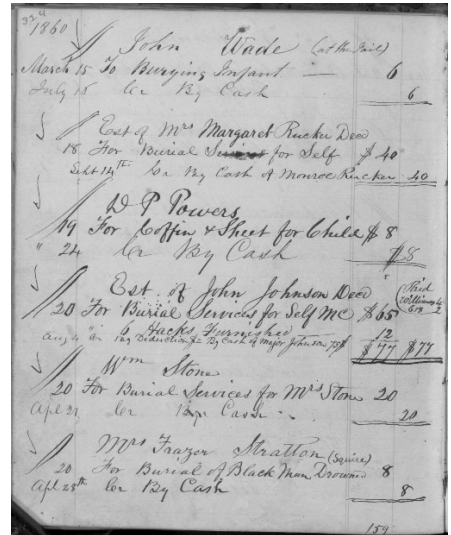 324
1860
John Wade (at the Jail)
March 15 To Burying Infant — 6
July 15 Cr By Cash 6
Est of Mrs Margaret Rucker Decd
18 For Burial Services for Self $ 40
Sept 14th Cr By Cash of Monroe Rucker 40
W P Powers
19 For Coffin & Sheet for Child $ 8
" 24 Cr By Cash $8
Est. of John Johnson Decd
20 For Burial Services for Self MC $65
6 Hacks Furnished 12
Aug 4 By Cash of Major Johnson $77 $77
Wm Stone
20 For Burial Services for Mrs Stone 20
Apl 21 Cr By Cash 20
Mrs Frazor Stratton (Squire)
20 For Burial of Black Man Drowned 8
Apl 25th Cr By Cash 8
159